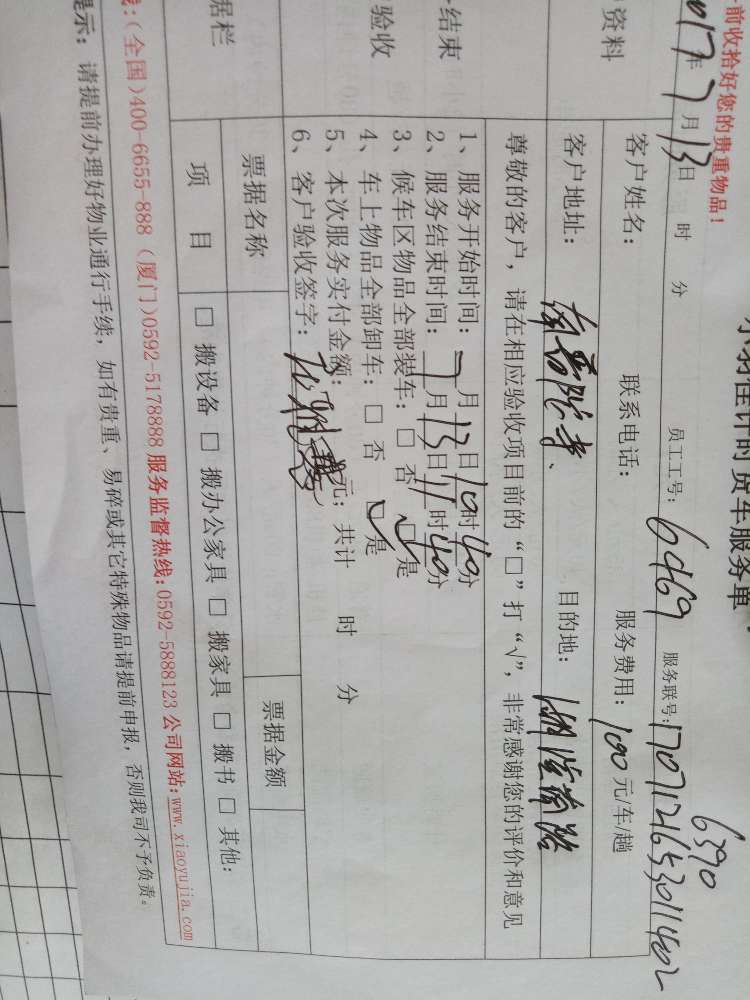 前收拾好您的贵重物品!
小羽佳计时货车服务单
2017年7月13日 时 分 员工工号: 6469 服务联号: 170712165301402
6390
资料
客户姓名: 联系电话: 服务费用: 100元/车/趟
客户地址: 南普陀寺、 目的地: 湖滨南路
尊敬的客户，请在相应验收项目前的“□”打“√”，非常感谢您的评价和意见
结束
验收
1、服务开始时间: 7月13日10时40分
2、服务结束时间: 7月13日11时40分
3、候车区物品全部装车: □ 否 ☑ 是
4、车上物品全部卸车: □ 否 ☑ 是
5、本次服务实付金额: 元; 共计 时 分
6、客户验收签字:
据栏
票据名称 票据金额
项 目 □ 搬设备 □ 搬办公家具 □ 搬家具 □ 搬书 □ 其他:
线:(全国)400-6655-888 (厦门)0592-5178888 服务监督热线:0592-5888123 公司网站:www.xiaoyujia.com
提示: 请提前办理好物业通行手续，如有贵重、易碎或其它特殊物品请提前申报，否则我司不予负责。